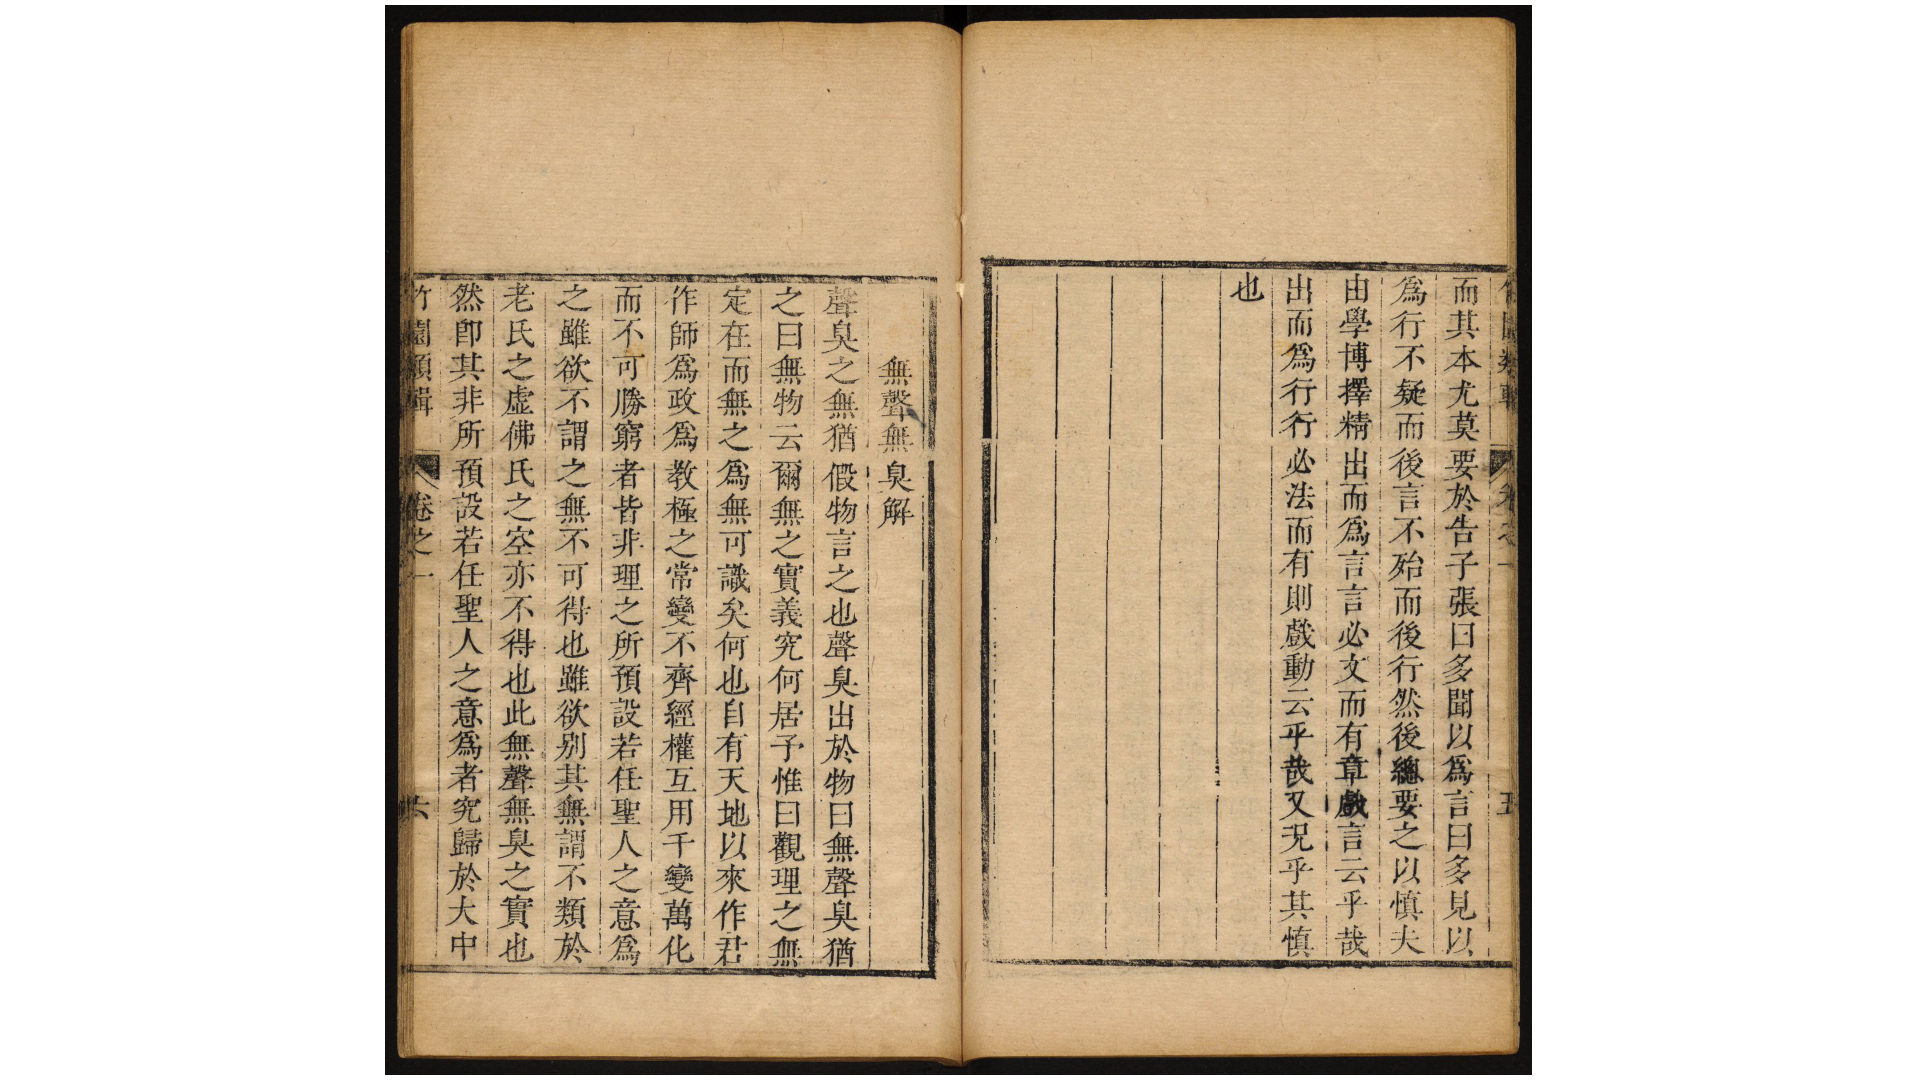 而其本尤莫要於告子張曰多聞以爲言曰多見以
爲行不疑而後言不殆而後行然後總要之以慎夫
由學博擇精出而爲言言必文而有章戲言云乎哉
出而爲行行必法而有則戲動云乎哉又況乎其慎
也
無聲無臭解
聲臭之無猶假物言之也聲臭出於物曰無聲臭猶
之曰無物云爾無之實義究何居予惟曰觀理之無
定在而無之爲無可識矣何也自有天地以來作君
作師爲政爲教極之常變不齊經權互用千變萬化
而不可勝窮者皆非理之所預設若任聖人之意爲
之雖欲不謂之無不可得也雖欲别其無謂不類於
老氏之虛佛氏之空亦不得也此無聲無臭之實也
然卽其非所預設若任聖人之意爲者究歸於大中
竹園類輯 卷之一 六